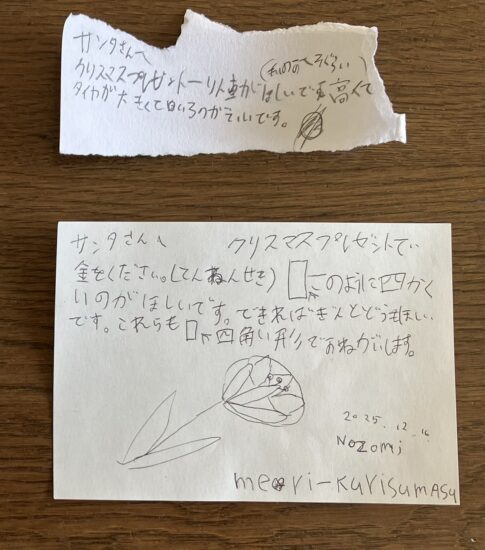 サンタさんへ
クリスマスプレゼント一りん車がほしいです高くて
(私のおへそぐらい)
タイヤが大きくて白いろのがいいです。
サンタさんへ クリスマスプレゼントで
金をください。(てんねんせき) このように四かく
いのがほしいです。できればぎんとどうもほしい
です。これらも 四角い形でおねがいします。
2025.12.
Nozomi
meri-KurisumAsu